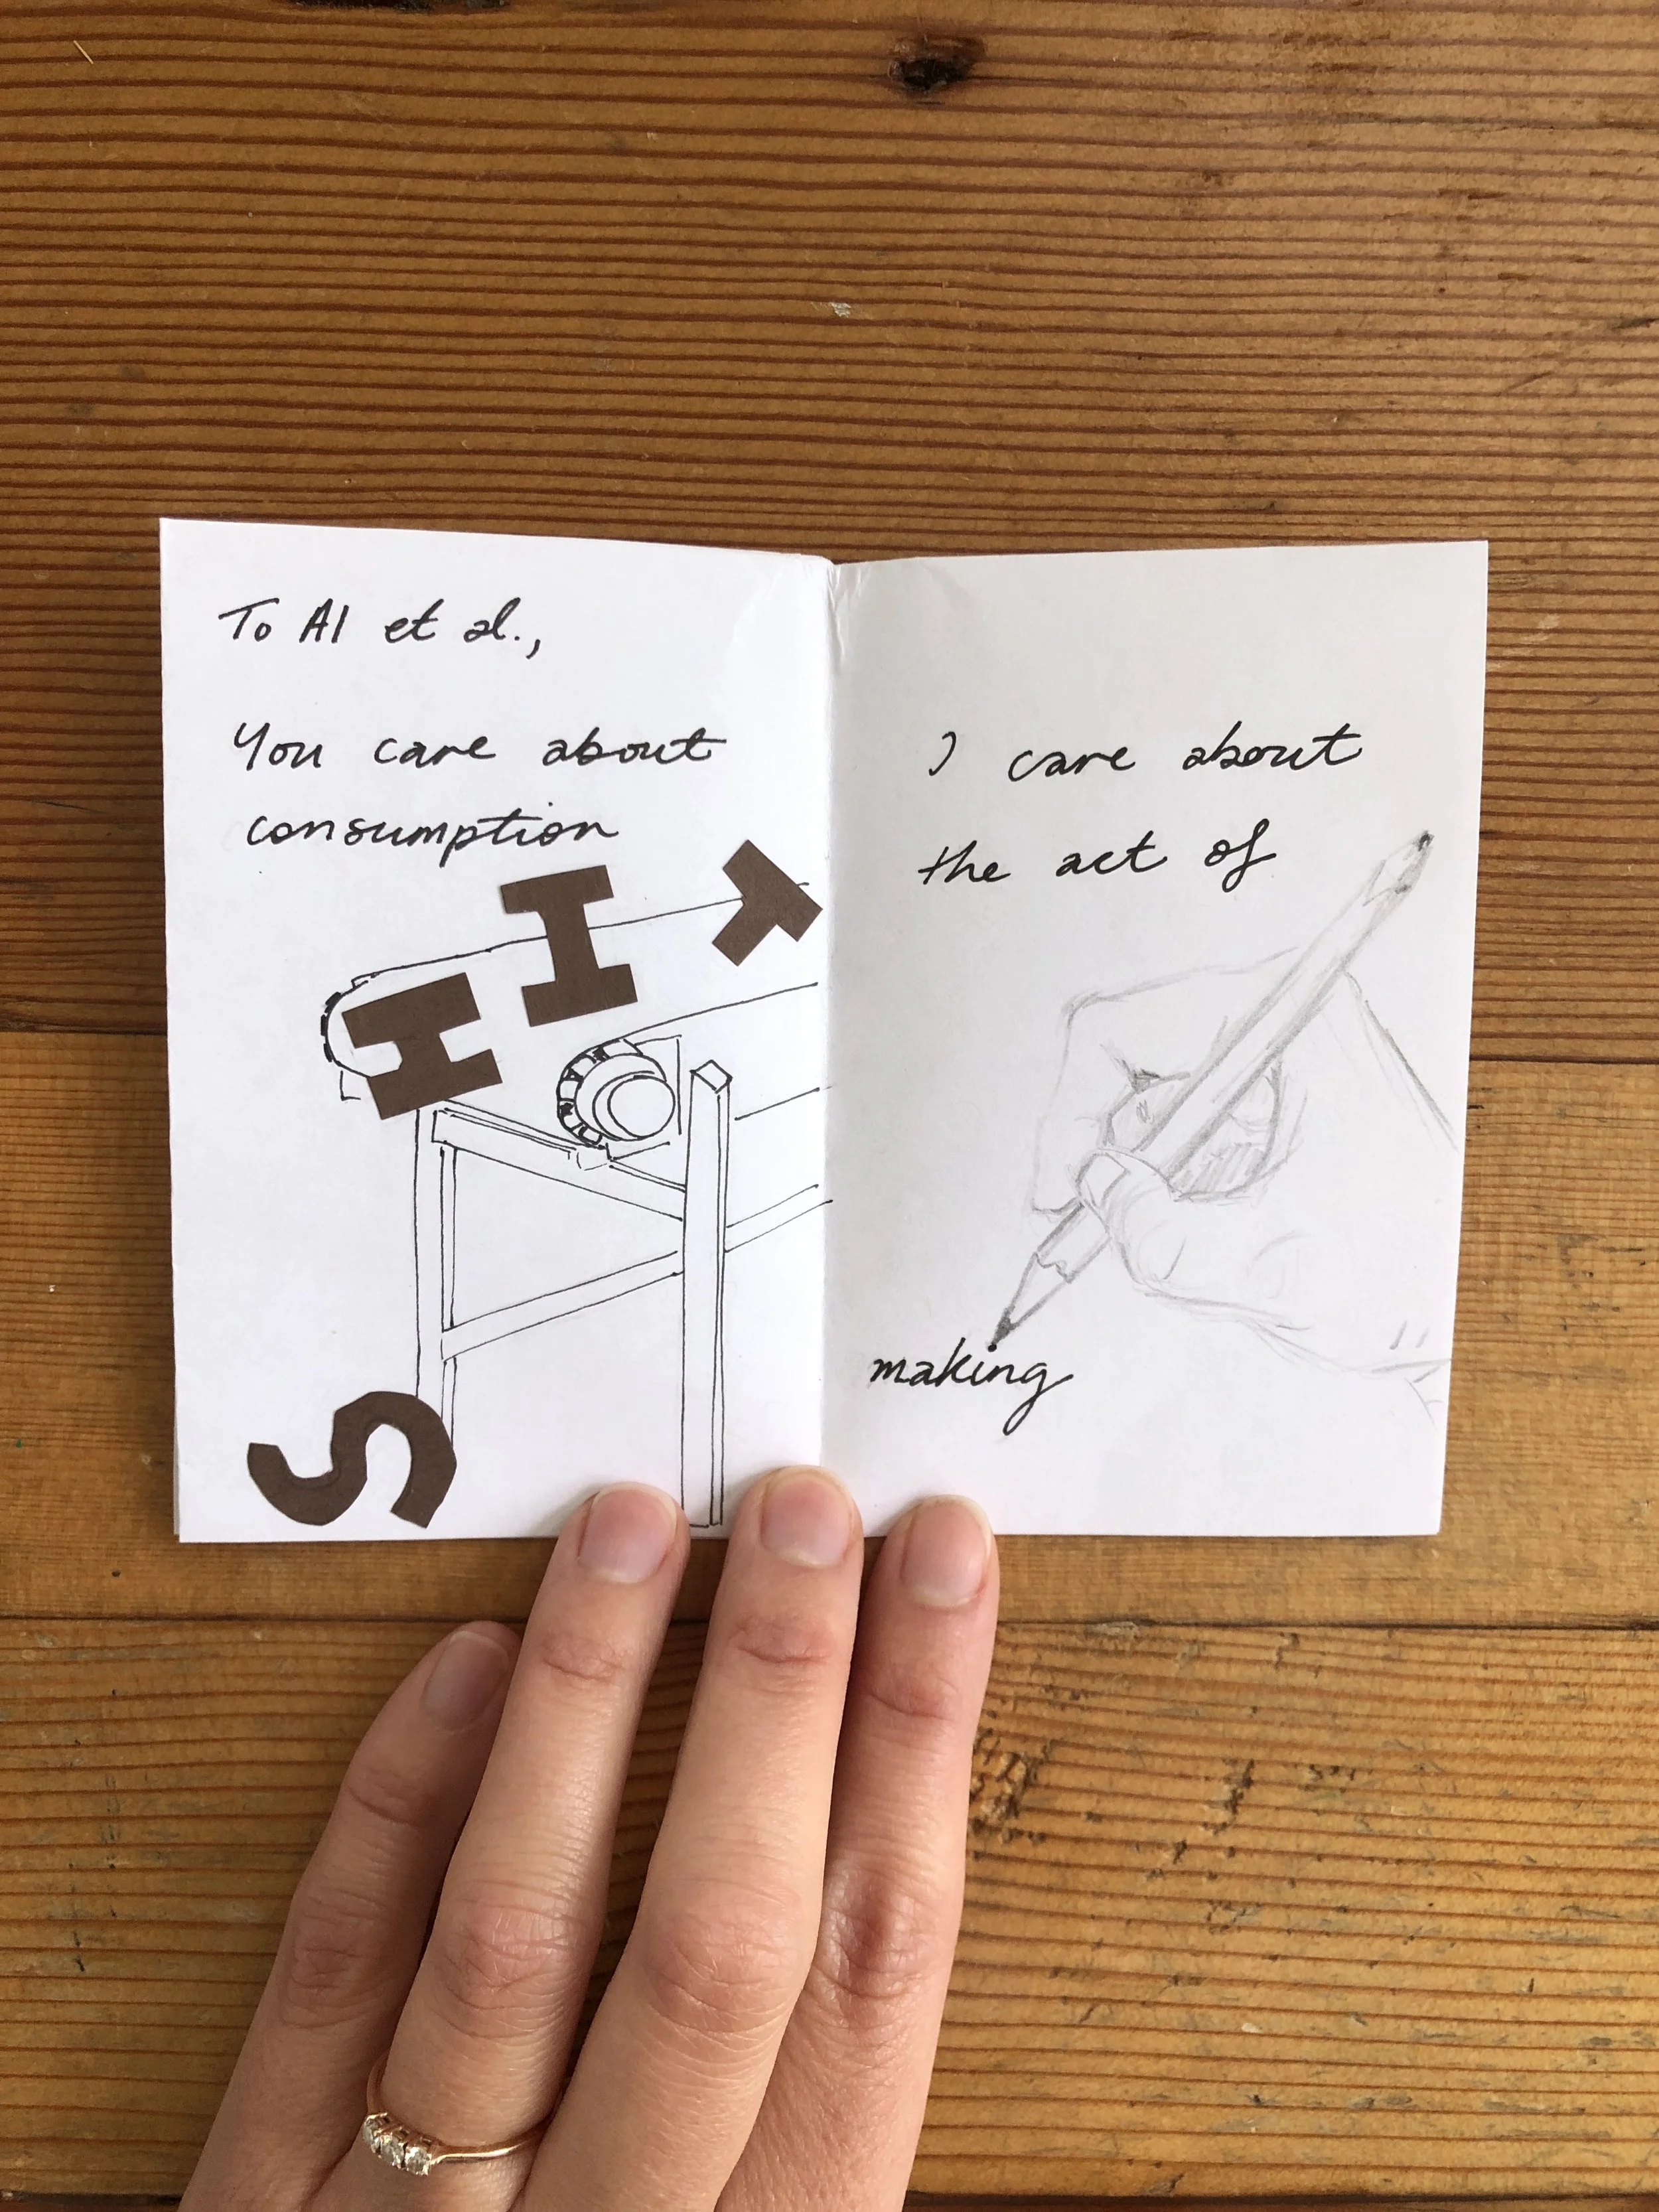 To AI et al.,
You care about
consumption
S H I T
I care about
the act of
making